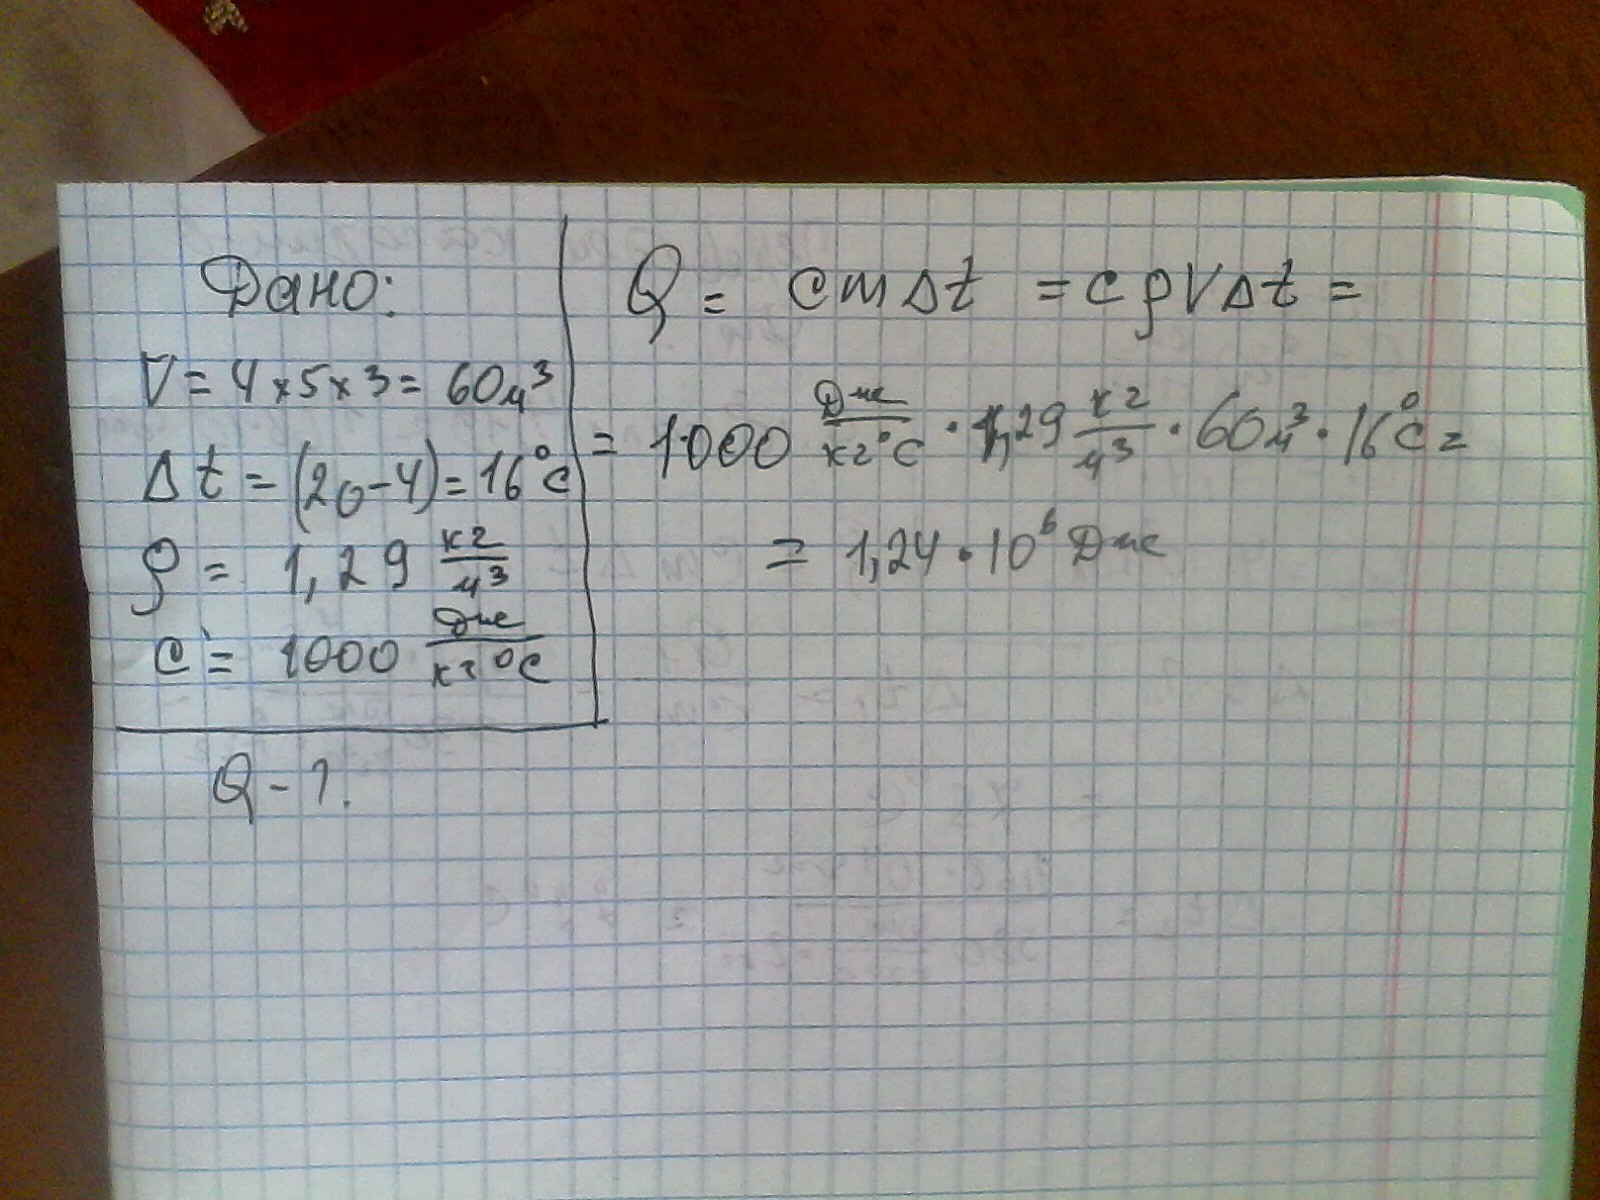 Дано:
V = 4 x 5 x 3 = 60 м³
Δt = (20-4) = 16°C
ρ = 1,29 кг/м³
c = 1000 Дж/кг°C
Q - ?.
Q = cmΔt = cρVΔt =
= 1000 Дж/кг°C · 1,29 кг/м³ · 60 м³ · 16°C =
= 1,24 · 10⁶ Дж